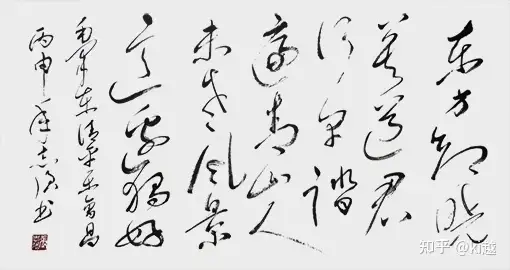 东方欲晓
莫道君
行早踏
遍青山人
未老风景
这边独好
毛泽东清平乐会昌
丙申年书
知乎 @kj越